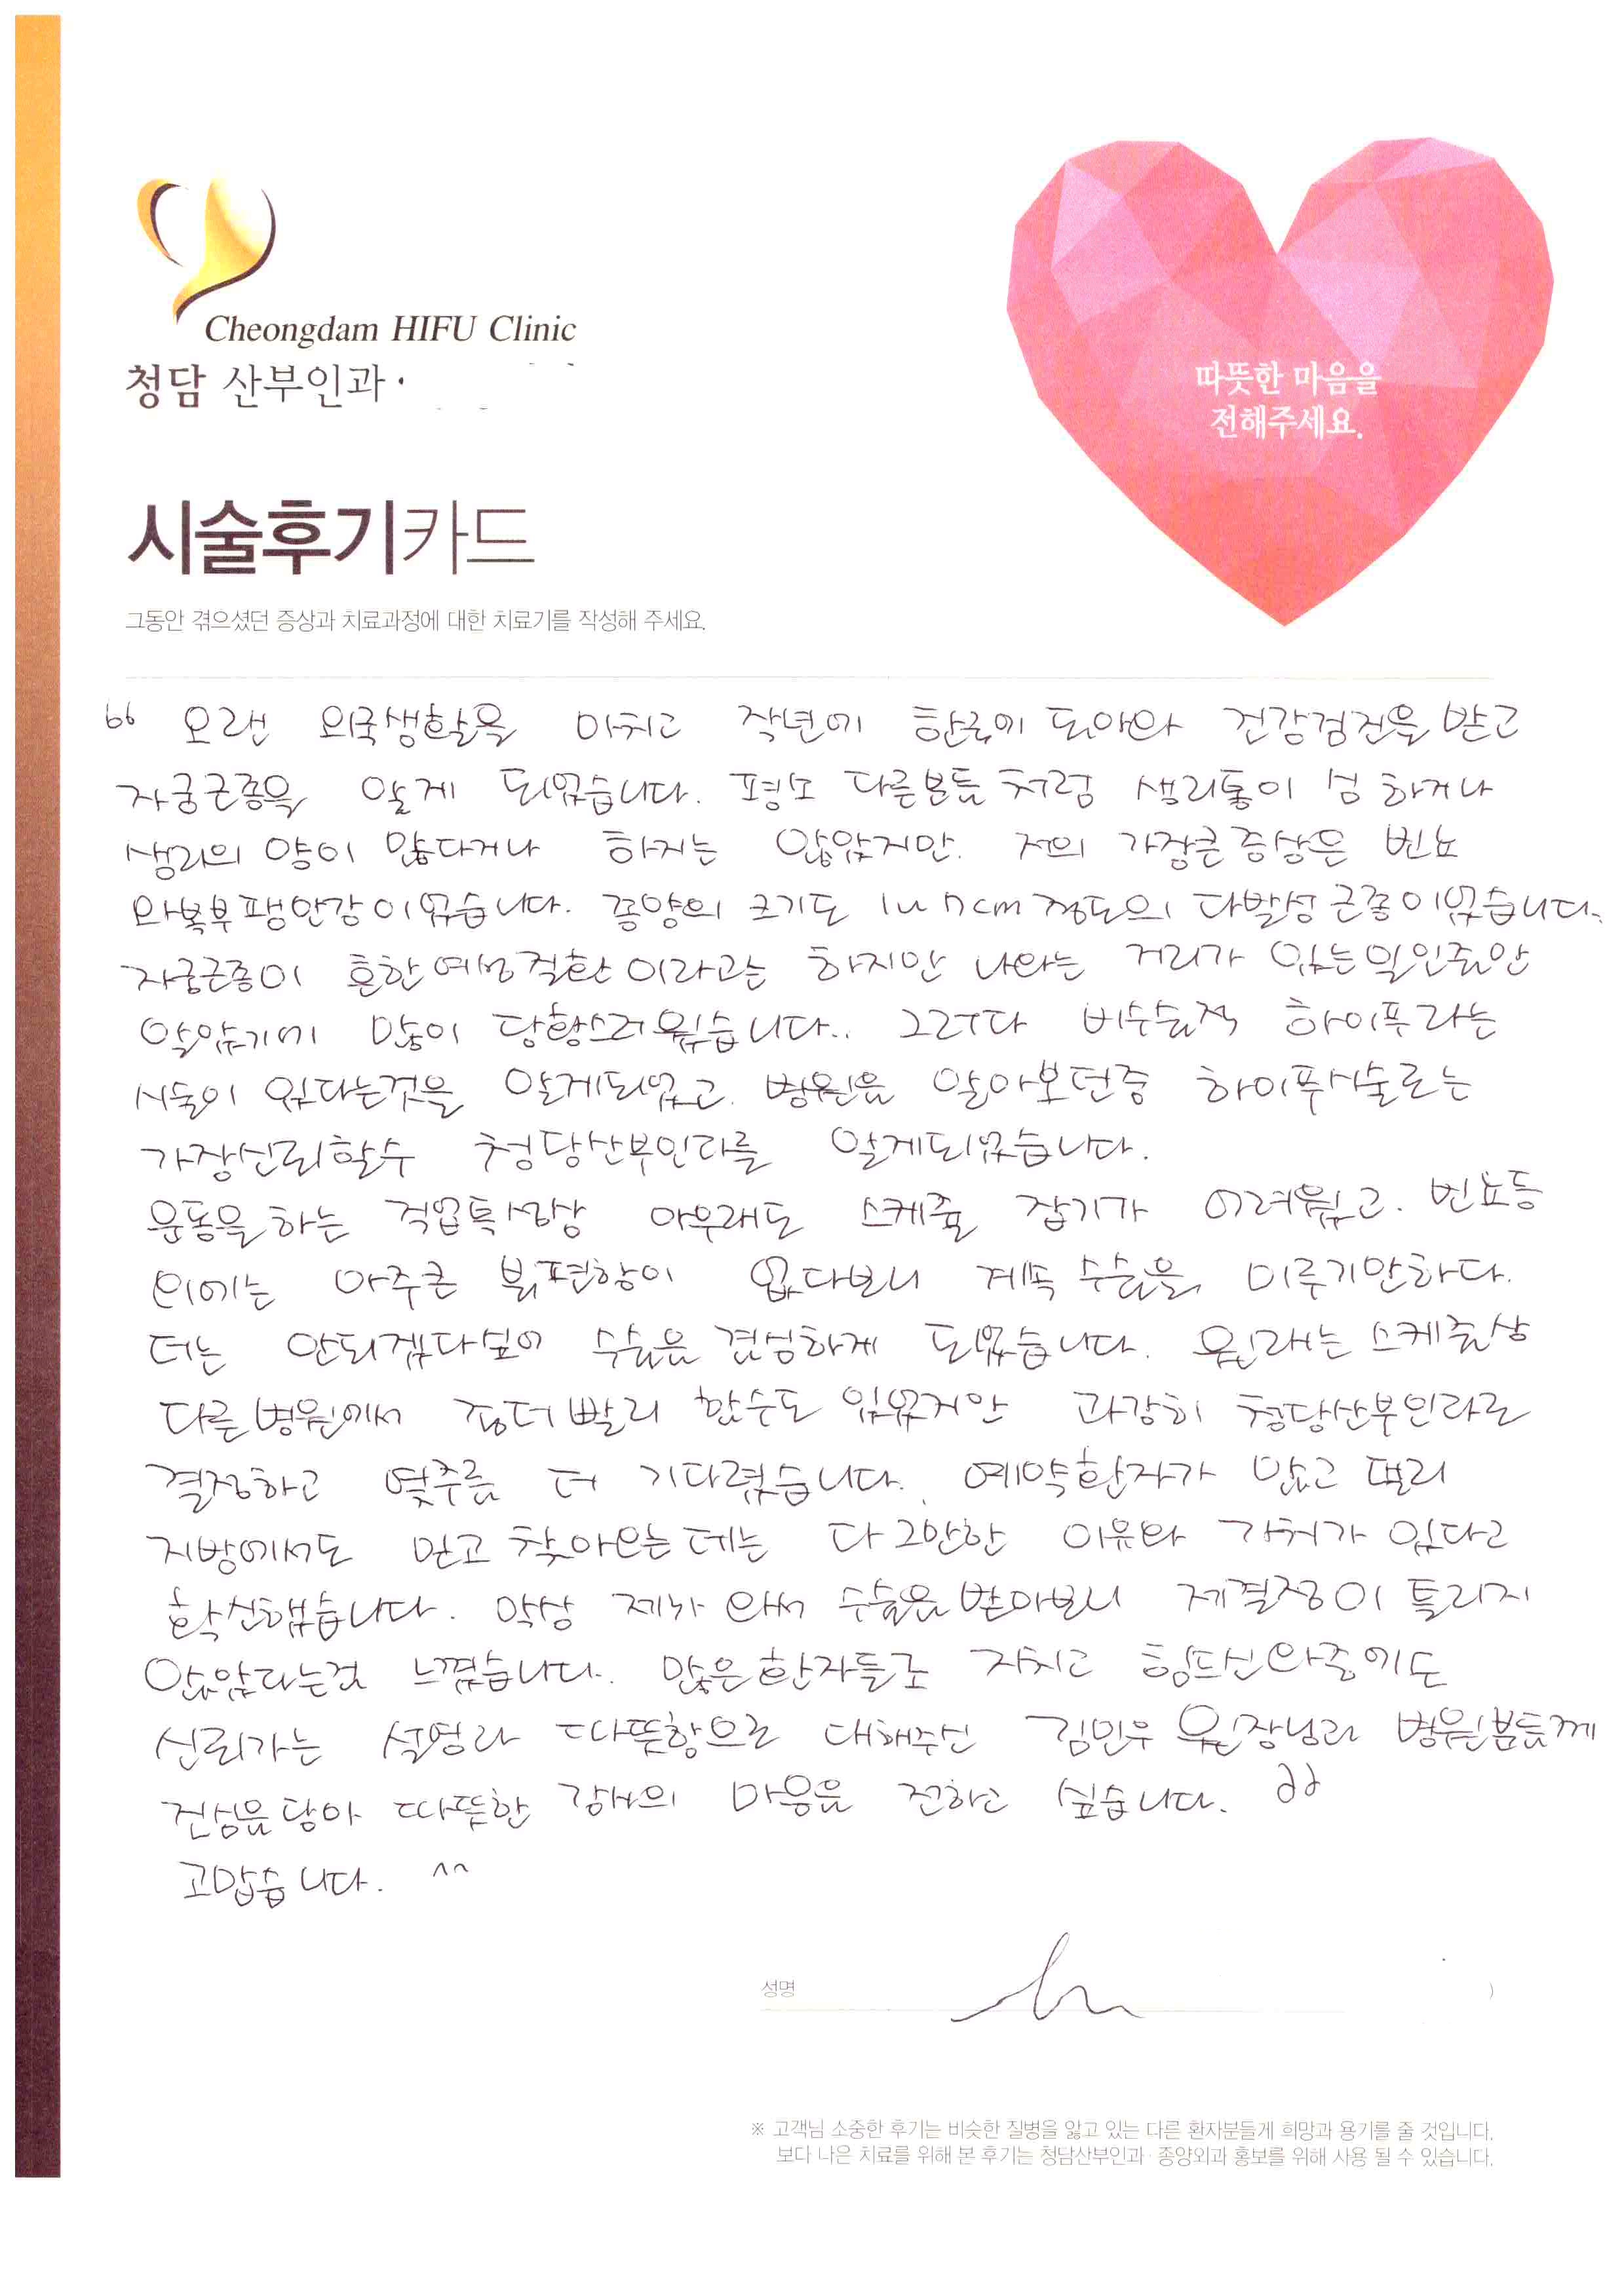 Cheongdam HIFU Clinic
청담 산부인과 ·
따뜻한 마음을
전해주세요.
시술후기카드
그동안 겪으셨던 증상과 치료과정에 대한 치료기를 작성해 주세요.
" 오랜 외국생활을 마치고 작년에 한국에 돌아와 건강검진을 받고
자궁근종을 알게 되었습니다. 평소 다른분들 처럼 생리통이 심하거나
생리의 양이 많다거나 하지는 않았지만. 저의 가장큰증상은 빈뇨
와복부팽만감이었습니다. 종양의 크기도 cm정도의 다발성근종이었습니다.
자궁근종이 흔한여성질환이라고는 하지만 나와는 거리가 있는일인줄만
알았기에 많이 당황스러웠습니다.. 그러다 비수술적 하이푸라는
시술이 있다는것을 알게되었고. 병원을 알아보던중 하이푸시술로는
가장신뢰할수 청담산부인과를 알게되었습니다.
운동을하는 직업특성상 아무래도 스케쥴 잡기가 어려웠고. 빈뇨등
외에는 아주큰 불편함이 없다보니 계속 수술을 미루기만하다.
더는 안되겠다싶어 수술을 결심하게 되었습니다. 원래는 스케쥴상
다른병원에서 좀더빨리 할수도 있었지만 과감히 청담산부인과로
결정하고 몇주를 더 기다렸습니다. 예약환자가 많고 멀리
지방에서도 믿고 찾아오는데는 다 그만한 이유와 가치가 있다고
확신했습니다. 막상 제가 와서 수술을받아보니 제결정이 틀리지
않았다는걸 느꼈습니다. 많은환자들로 지치고 힘드신와중에도
신뢰가는 설명과 따뜻함으로 대해주신 김민우 원장님과 병원분들께
진심을담아 따뜻한 감사의 마음을 전하고 싶습니다. "
고맙습니다. ^^
성명 )
※ 고객님 소중한 후기는 비슷한 질병을 앓고 있는 다른 환자분들게 희망과 용기를 줄 것입니다.
보다 나은 치료를 위해 본 후기는 청담산부인과 · 종양외과 홍보를 위해 사용 될 수 있습니다.